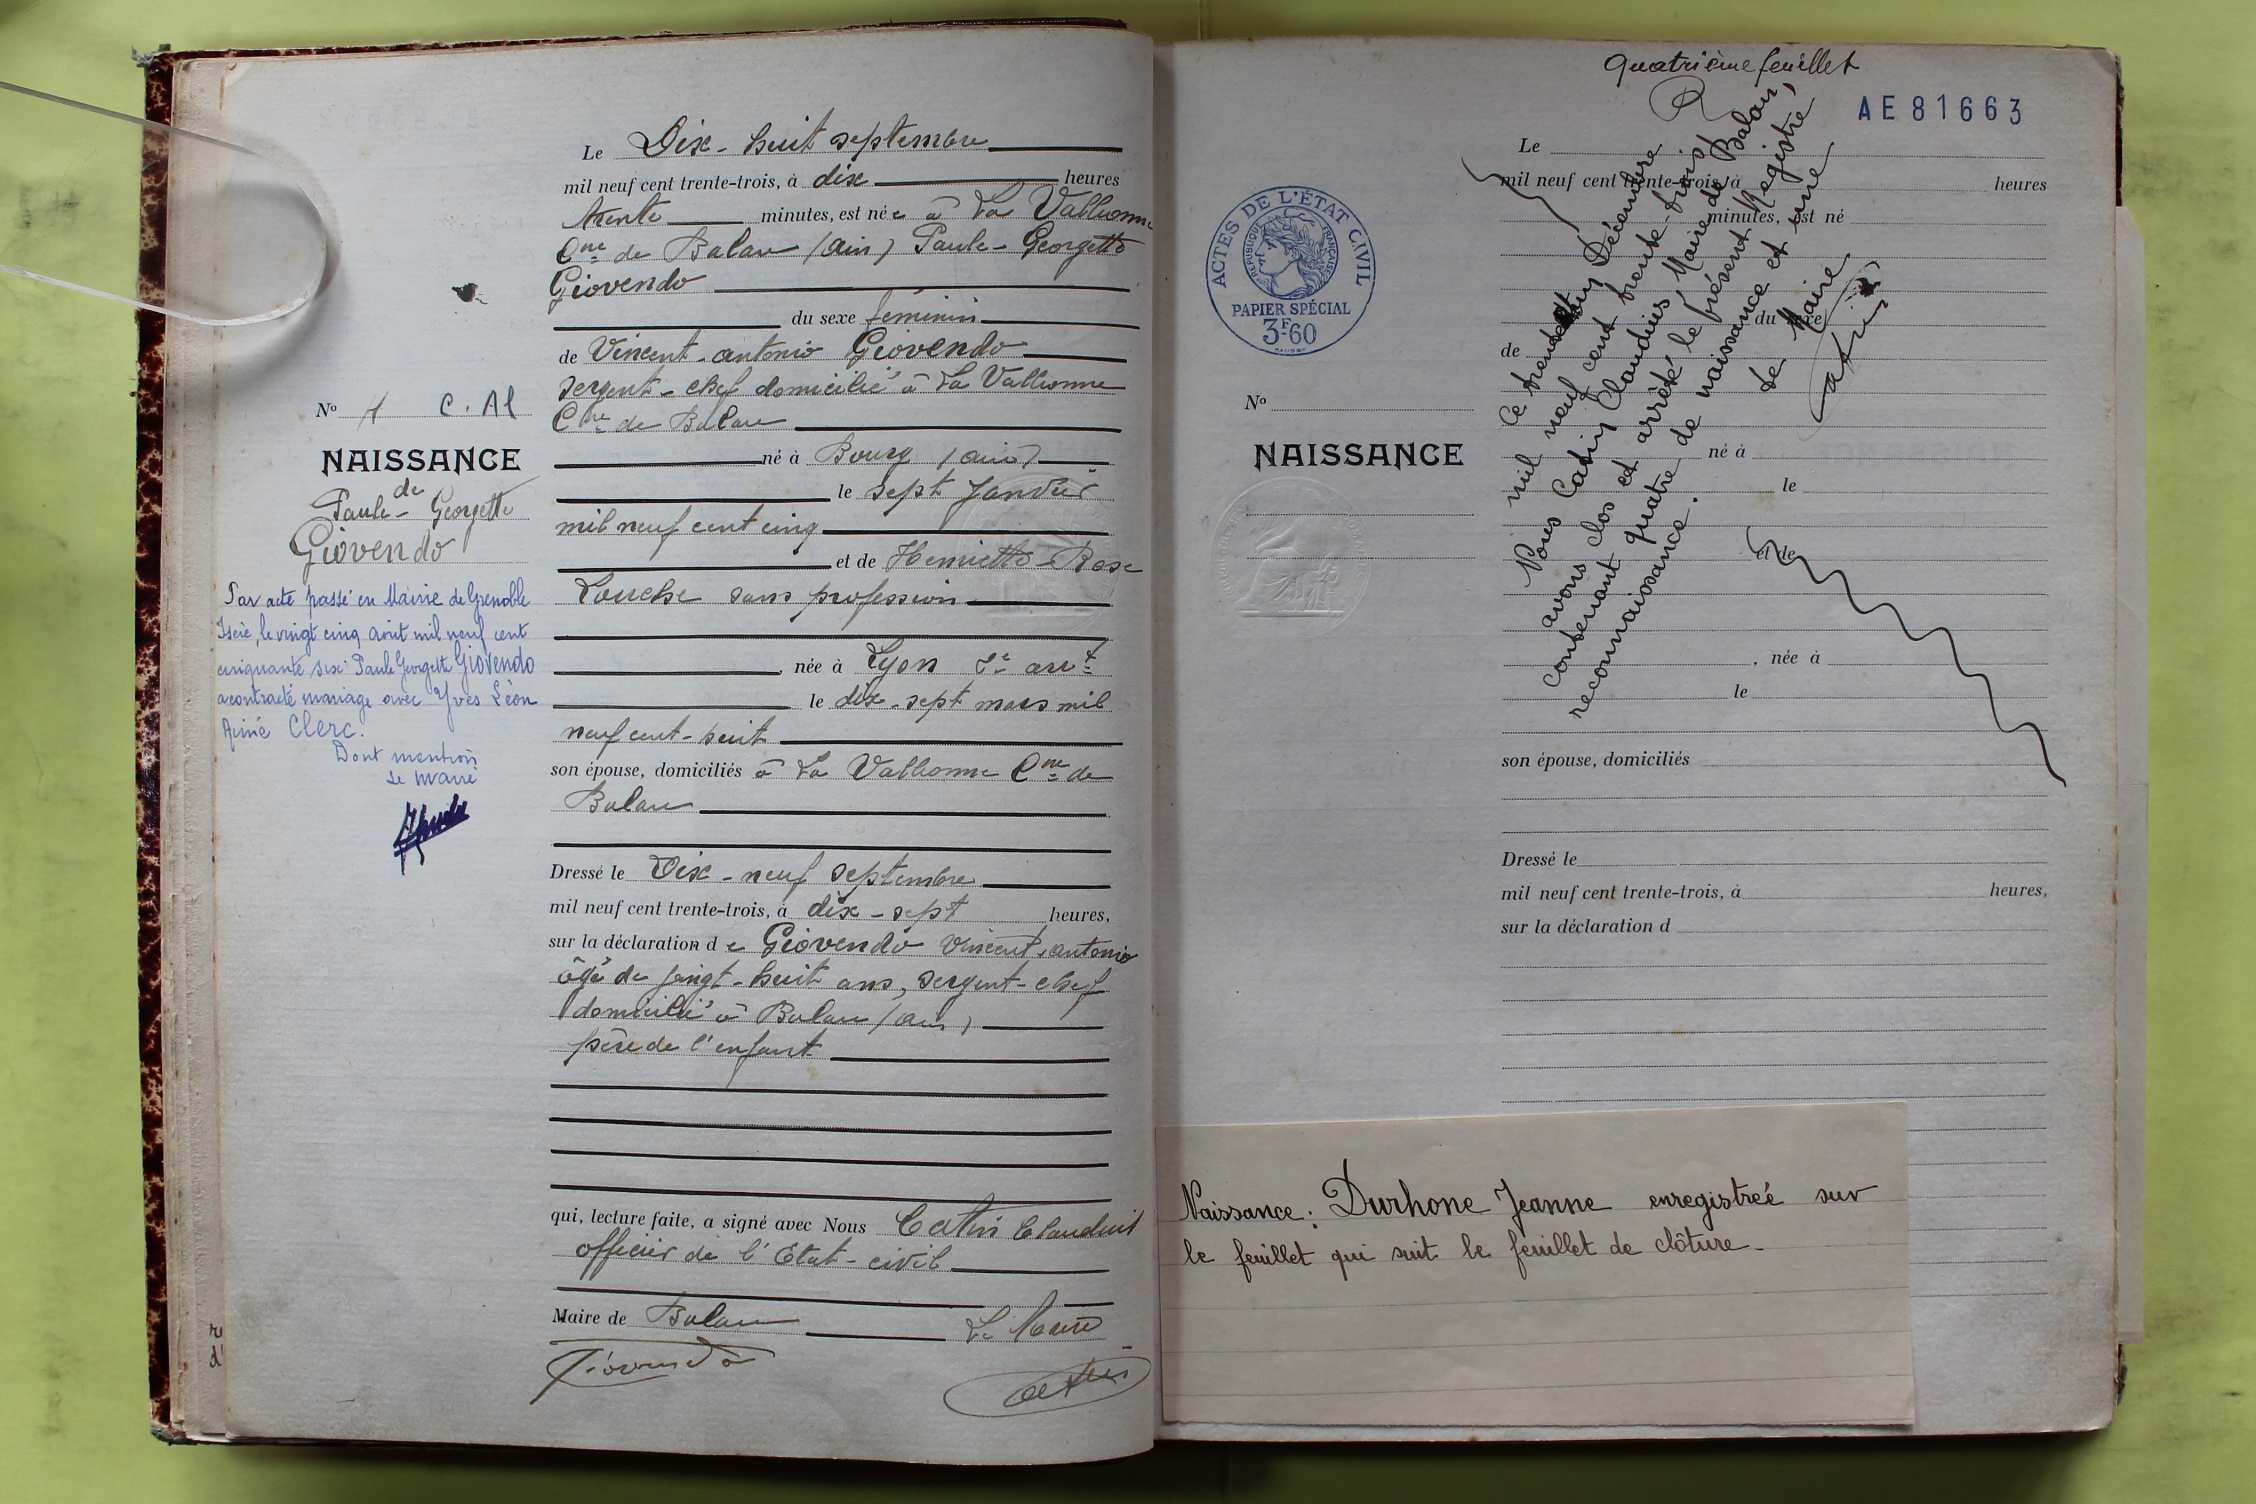 Le Dix-huit septembre
mil neuf cent trente-trois, à dix heures
trente minutes, est née à La Valbonne
Cne de Balan (Ain) Paule-Georgette
Giovendo
du sexe féminin
de Vincent-Antonio Giovendo
sergent-chef domicilié à La Valbonne
Cne de Balan
né à Bourg (Ain)
le sept Janvier
mil neuf cent cinq
et de Henriette-Rose
sans profession
née à Lyon arrt
le dix-sept mars mil
neuf cent-huit
son épouse, domiciliés à La Valbonne Cne de
Balan
Dressé le Dix-neuf septembre
mil neuf cent trente-trois, à dix-sept heures,
sur la déclaration de Giovendo Vincent, Antonio
âgé de vingt-huit ans, sergent-chef
domicilié à Balan (Ain)
père de l'enfant
qui, lecture faite, a signé avec Nous Catin Claudius
officier de l'Etat-civil
Maire de Balan Le Maire
Giovendo
Catin
No 4 C. Al
NAISSANCE
de
Paule-Georgette
Giovendo
Par acte passé en Mairie de Grenoble
Isère, le vingt cinq août mil neuf cent
cinquante six: Paule Georgette GIOVENDO
a contracté mariage avec Yves Léon
Aimé Clerc.
Dont mention
Le Maire
Quatrième feuillet
AE 81663
ACTES DE L'ÉTAT CIVIL
RÉPUBLIQUE FRANÇAISE
PAPIER SPÉCIAL
3F-60
No
NAISSANCE
Le
mil neuf cent trente-trois, à heures
minutes, est né
du sexe
de
né à
le
et de
née à
le
son épouse, domiciliés
Dressé le
mil neuf cent trente-trois, à heures,
sur la déclaration d
Ce trente Décembre
mil neuf cent trente-trois,
Nous Catin Claudius, Maire de Balan,
avons clos et arrêté le présent Registre
contenant quatre de naissance et une
reconnaissance.
Le Maire
Catin
Naissance: Durhone Jeanne enregistreé sur
le feuillet qui suit le feuillet de clôture.